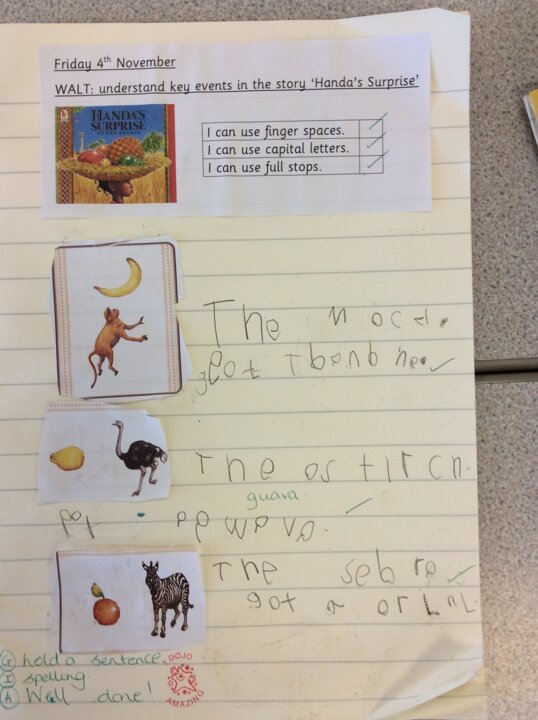 Friday 4th November
WALT: understand key events in the story ‘Handa’s Surprise’
HANDA'S
SURPRISE
EILEEN BROWNE
I can use finger spaces. ✓
I can use capital letters. ✓
I can use full stops. ✓
The
got
The os tircn.
guava
The sebra ✓
got a
G hold a sentence
I spelling
A Well done!
DOJO
AMAZING